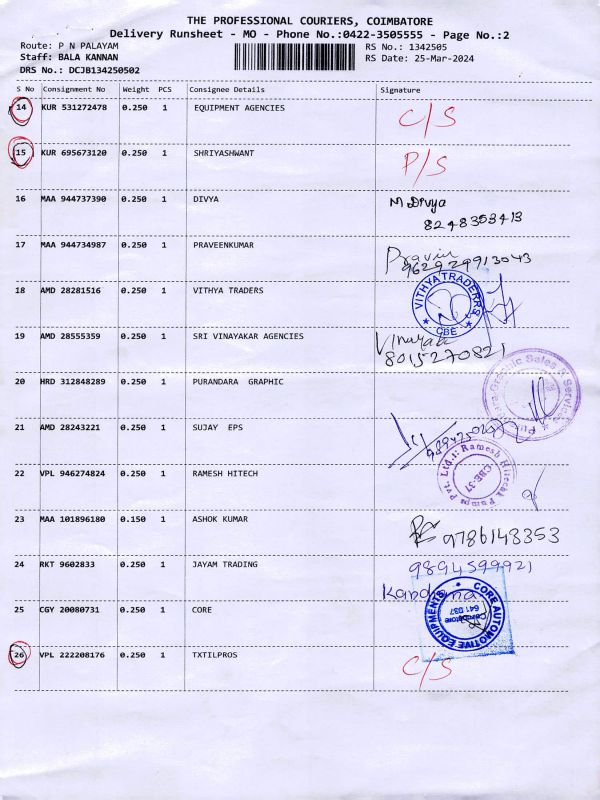 THE PROFESSIONAL COURIERS, COIMBATORE
Delivery Runsheet - MO - Phone No.:0422-3505555 - Page No.:2
Route: P N PALAYAM RS No.: 1342505
Staff: BALA KANNAN RS Date: 25-Mar-2024
DRS No.: DCJB134250502
S No Consignment No Weight PCS Consignee Details Signature
14 KUR 531272478 0.250 1 EQUIPMENT AGENCIES C/S
15 KUR 695673120 0.250 1 SHRIYASHWANT P/S
16 MAA 944737390 0.250 1 DIVYA M Divya
8248353413
17 MAA 944734987 0.250 1 PRAVEENKUMAR Pravin
18 AMD 28281516 0.250 1 VITHYA TRADERS VITHYA TRADERRS
CBE
19 AMD 28555359 0.250 1 SRI VINAYAKAR AGENCIES Vinayaka
8015270821
20 HRD 312848289 0.250 1 PURANDARA GRAPHIC Graphic Sales & Services
21 AMD 28243221 0.250 1 SUJAY EPS
22 VPL 946274824 0.250 1 RAMESH HITECH Ramesh Hitecak Pumps Pvt. Ltd.
CBE-37
23 MAA 101896180 0.150 1 ASHOK KUMAR 9786148353
24 RKT 9602833 0.250 1 JAYAM TRADING 9894599921
25 CGY 20080731 0.250 1 CORE CORE AUTOMOTIVE EQUIPMENTS
Coimbatore
641 037
26 VPL 222208176 0.250 1 TXTILPROS C/S